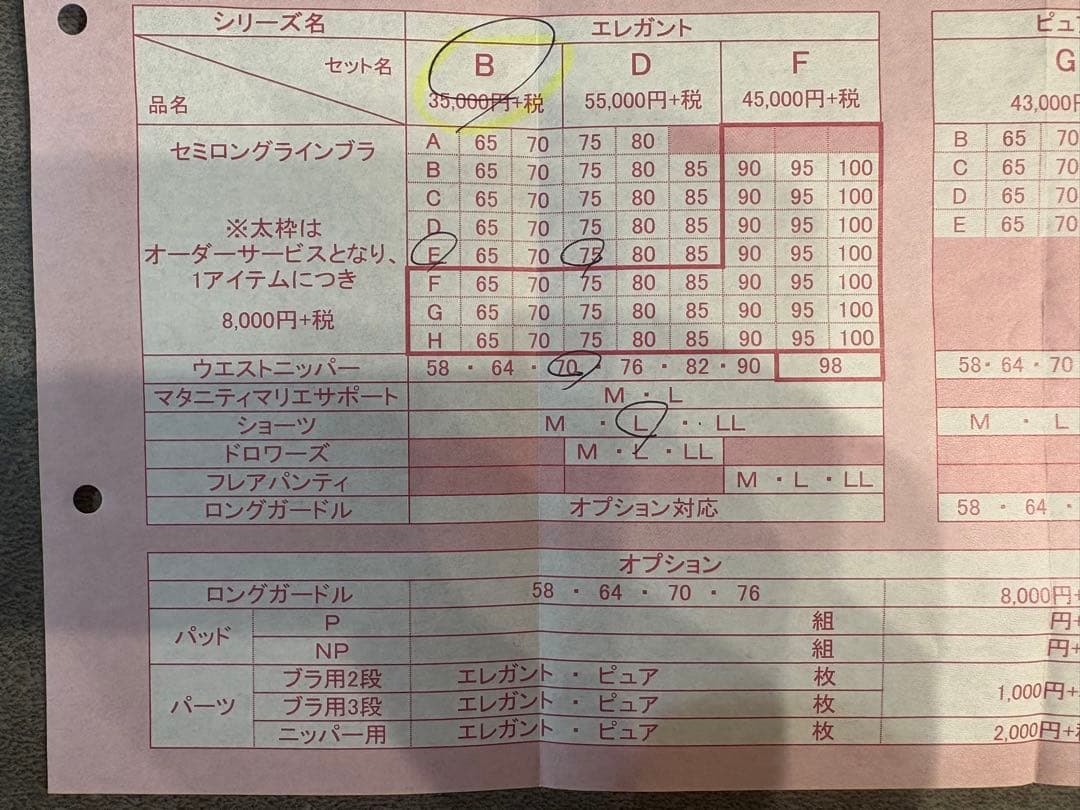 シリーズ名 エレガント ピュ
セット名 B D F G
品名 35,000円+税 55,000円+税 45,000円+税 43,000円
セミロングラインブラ
※太枠は
オーダーサービスとなり、
1アイテムにつき
8,000円+税
A 65 70 75 80 B 65 70
B 65 70 75 80 85 90 95 100 C 65 70
C 65 70 75 80 85 90 95 100 D 65 70
D 65 70 75 80 85 90 95 100 E 65 70
E 65 70 75 80 85 90 95 100
F 65 70 75 80 85 90 95 100
G 65 70 75 80 85 90 95 100
H 65 70 75 80 85 90 95 100
ウエストニッパー 58 ・ 64 ・ 70 ・ 76 ・ 82 ・ 90 98 58・64・70
マタニティマリエサポート M ・ L
ショーツ M ・ L ・ LL M ・ L
ドロワーズ M ・ L ・ LL
フレアパンティ M ・ L ・ LL
ロングガードル オプション対応 58 ・ 64 ・
オプション
ロングガードル 58 ・ 64 ・ 70 ・ 76 8,000円+
パッド P 組 円+
NP 組 円+
パーツ ブラ用2段 エレガント ・ ピュア 枚 1,000円+
ブラ用3段 エレガント ・ ピュア 枚
ニッパー用 エレガント ・ ピュア 枚 2,000円+